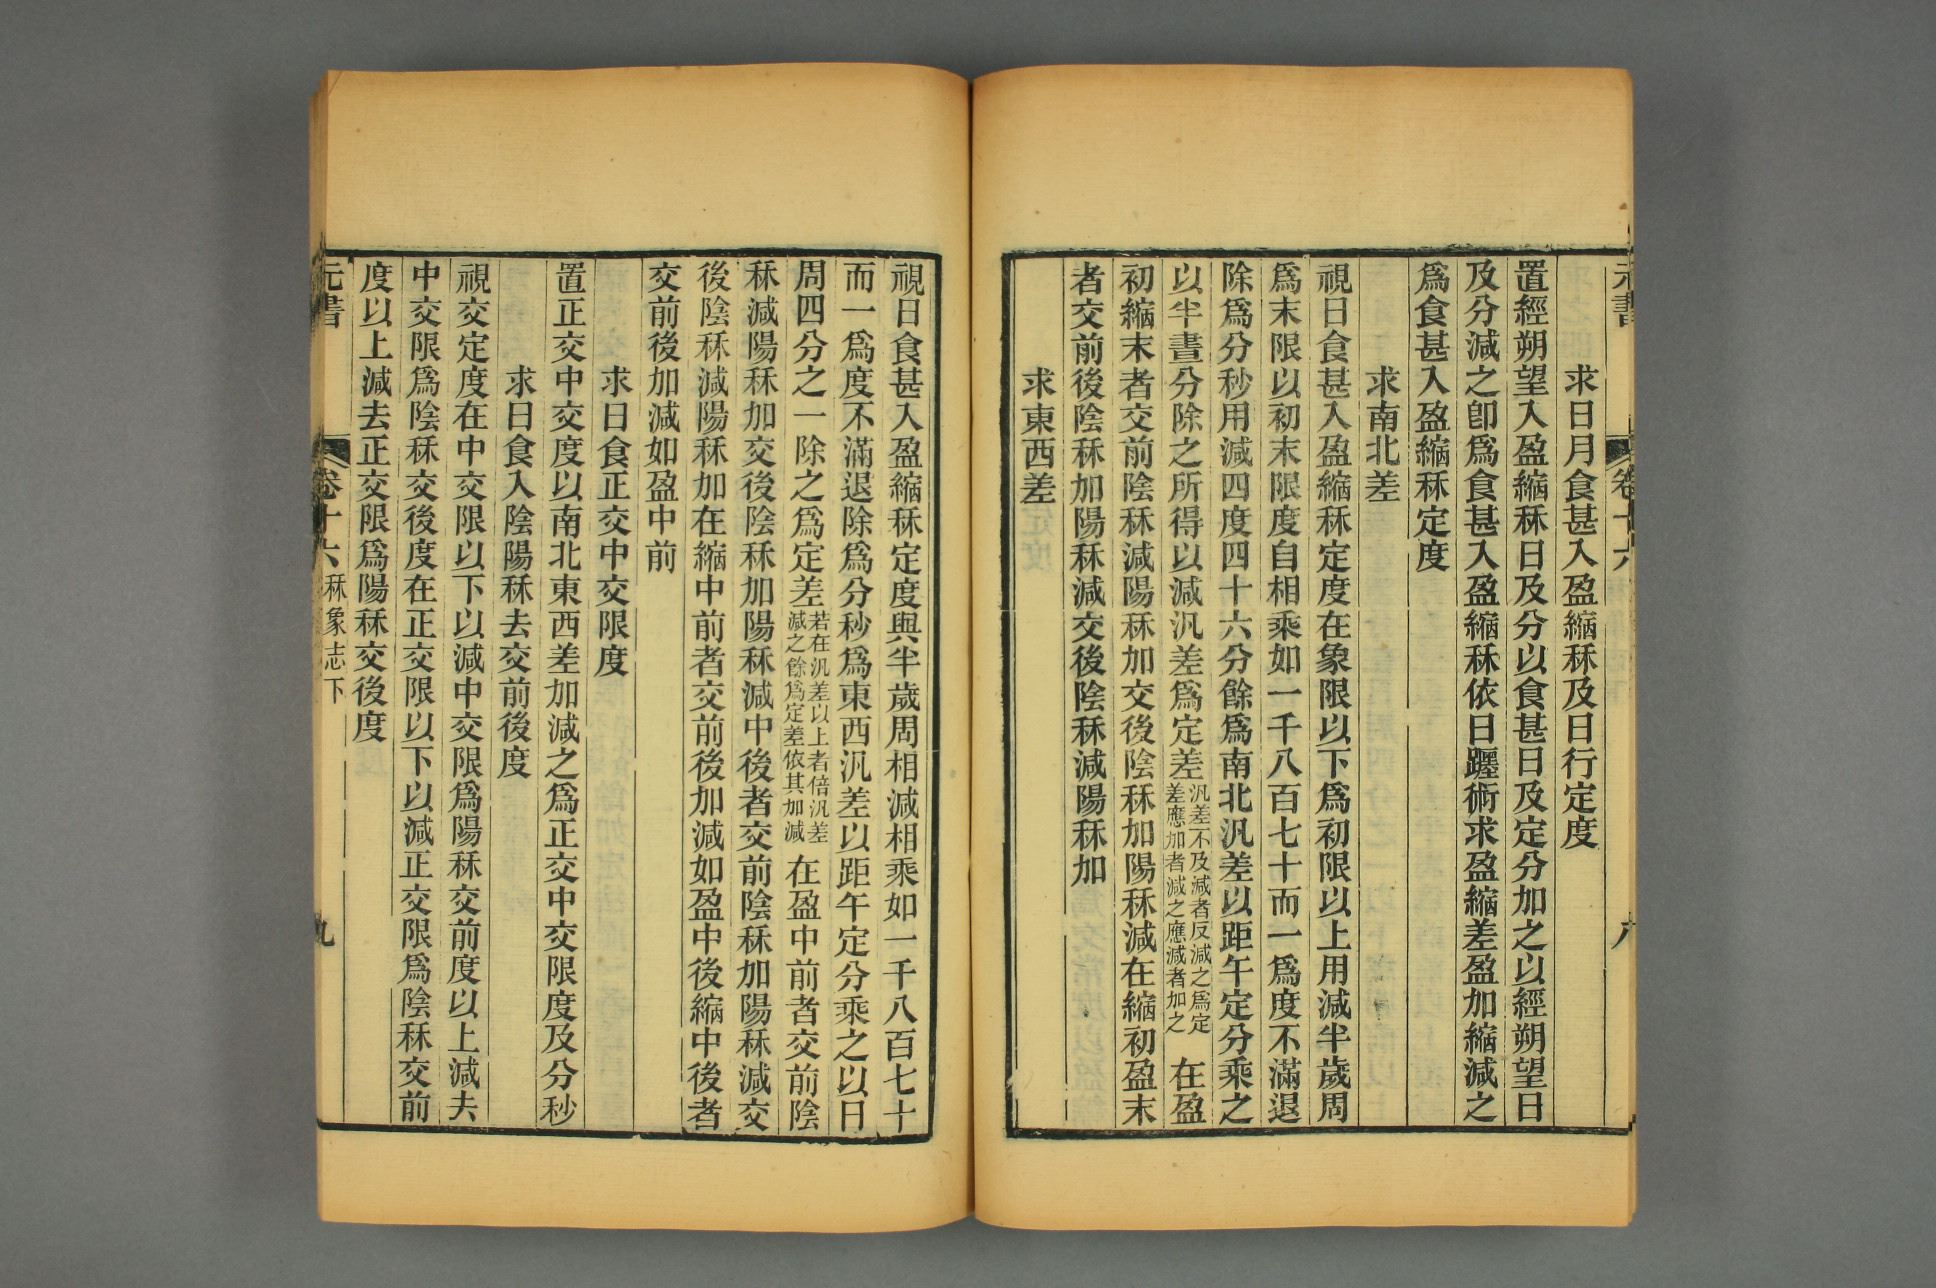 元書 卷十六 八
求日月食甚入盈縮秝及日行定度
置經朔望入盈縮秝日及分以食甚日及定分加之以經朔望日
及分減之卽爲食甚入盈縮秝依日躔術求盈縮差盈加縮減之
爲食甚入盈縮秝定度
求南北差
視日食甚入盈縮秝定度在象限以下爲初限以上用減半歲周
爲末限以初末限度自相乘如一千八百七十而一爲度不滿退
除爲分秒用減四度四十六分餘爲南北汎差以距午定分乘之
以半晝分除之所得以減汎差爲定差汎差不及減者反減之爲定差應加者減之應減者加之在盈
初縮末者交前陰秝減陽秝加交後陰秝加陽秝減在縮初盈末
者交前後陰秝加陽秝減交後陰秝減陽秝加
求東西差
視日食甚入盈縮秝定度與半歲周相減相乘如一千八百七十
而一爲度不滿退除爲分秒爲東西汎差以距午定分乘之以日
周四分之一除之爲定差若在汎差以上者倍汎差減之餘爲定差依其加減在盈中前者交前陰
秝減陽秝加交後陰秝加陽秝減中後者交前陰秝加陽秝減交
後陰秝減陽秝加在縮中前者交前後加減如盈中後縮中後者
交前後加減如盈中前
求日食正交中交限度
置正交中交度以南北東西差加減之爲正交中交限度及分秒
求日食入陰陽秝去交前後度
視交定度在中交限以下以減中交限爲陽秝交前度以上減去
中交限爲陰秝交後度在正交限以下以減正交限爲陰秝交前
度以上減去正交限爲陽秝交後度
元書 卷十六秝象志下 九